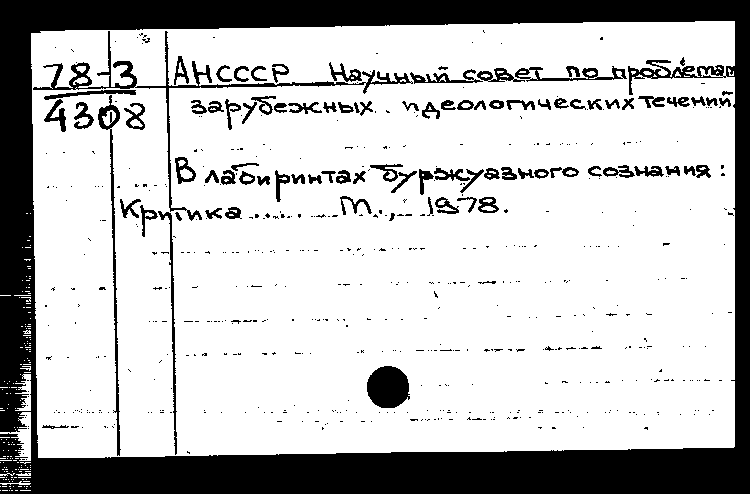 78-3 АНСССР Научный совет по проблемам
4308 зарубежных идеологических течений.
В лабиринтах буржуазного сознания:
Критика ..... М., 1978.